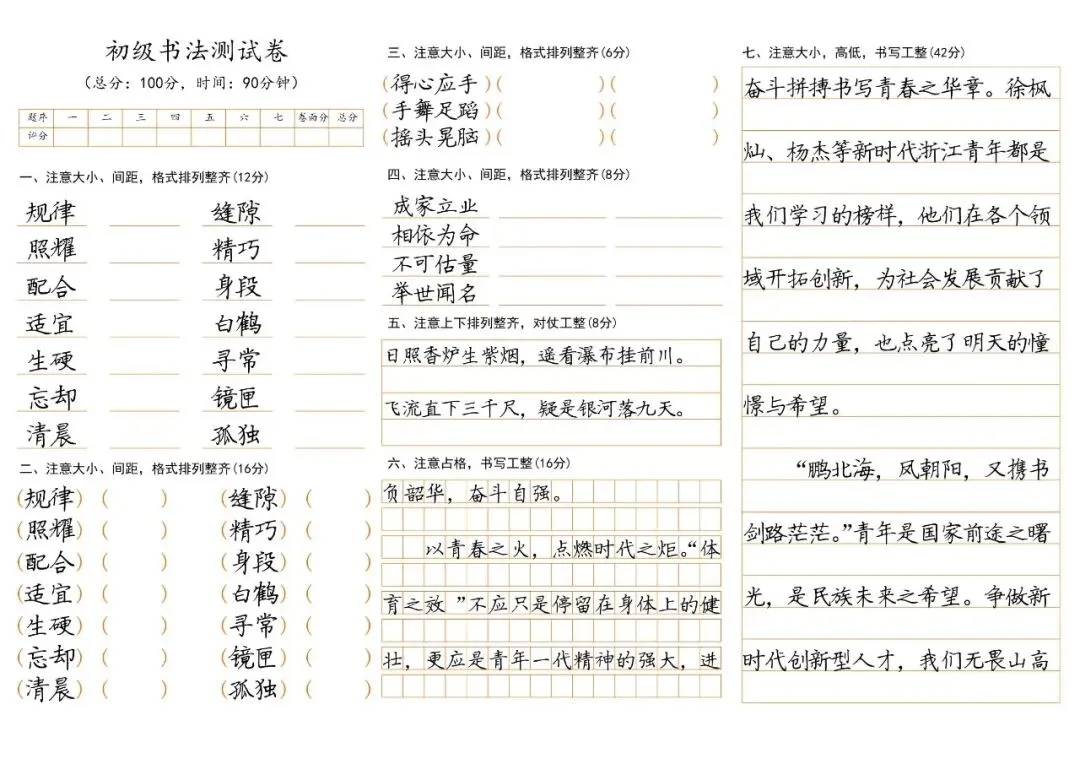 初级书法测试卷
(总分：100分，时间：90分钟)
题序 一 二 三 四 五 六 七 卷面分 总分
评分
一、注意大小、间距，格式排列整齐(12分)
规律 缝隙
照耀 精巧
配合 身段
适宜 白鹤
生硬 寻常
忘却 镜匣
清晨 孤独
二、注意大小、间距，格式排列整齐(16分)
(规律) ( ) (缝隙) ( )
(照耀) ( ) (精巧) ( )
(配合) ( ) (身段) ( )
(适宜) ( ) (白鹤) ( )
(生硬) ( ) (寻常) ( )
(忘却) ( ) (镜匣) ( )
(清晨) ( ) (孤独) ( )
三、注意大小、间距，格式排列整齐(6分)
(得心应手) ( ) ( )
(手舞足蹈) ( ) ( )
(摇头晃脑) ( ) ( )
四、注意大小、间距，格式排列整齐(8分)
成家立业
相依为命
不可估量
举世闻名
五、注意上下排列整齐，对仗工整(8分)
日照香炉生紫烟，遥看瀑布挂前川。
飞流直下三千尺，疑是银河落九天。
六、注意占格，书写工整(16分)
负韶华，奋斗自强。
以青春之火，点燃时代之炬。“体
育之效 ”不应只是停留在身体上的健
壮，更应是青年一代精神的强大，进
七、注意大小，高低，书写工整(42分)
奋斗拼搏书写青春之华章。徐枫
灿、杨杰等新时代浙江青年都是
我们学习的榜样，他们在各个领
域开拓创新，为社会发展贡献了
自己的力量，也点亮了明天的憧
憬与希望。
“鹏北海，凤朝阳，又携书
剑路茫茫。”青年是国家前途之曙
光，是民族未来之希望。争做新
时代创新型人才，我们无畏山高